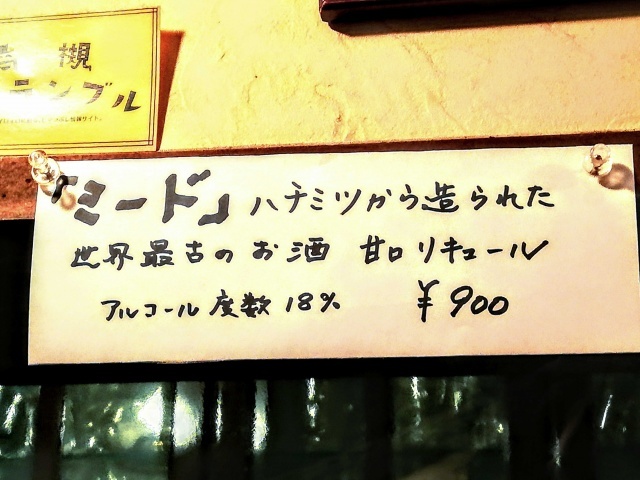 高槻
ランブル
『ミード』ハチミツから造られた
世界最古のお酒 甘口リキュール
アルコール度数18% ¥900